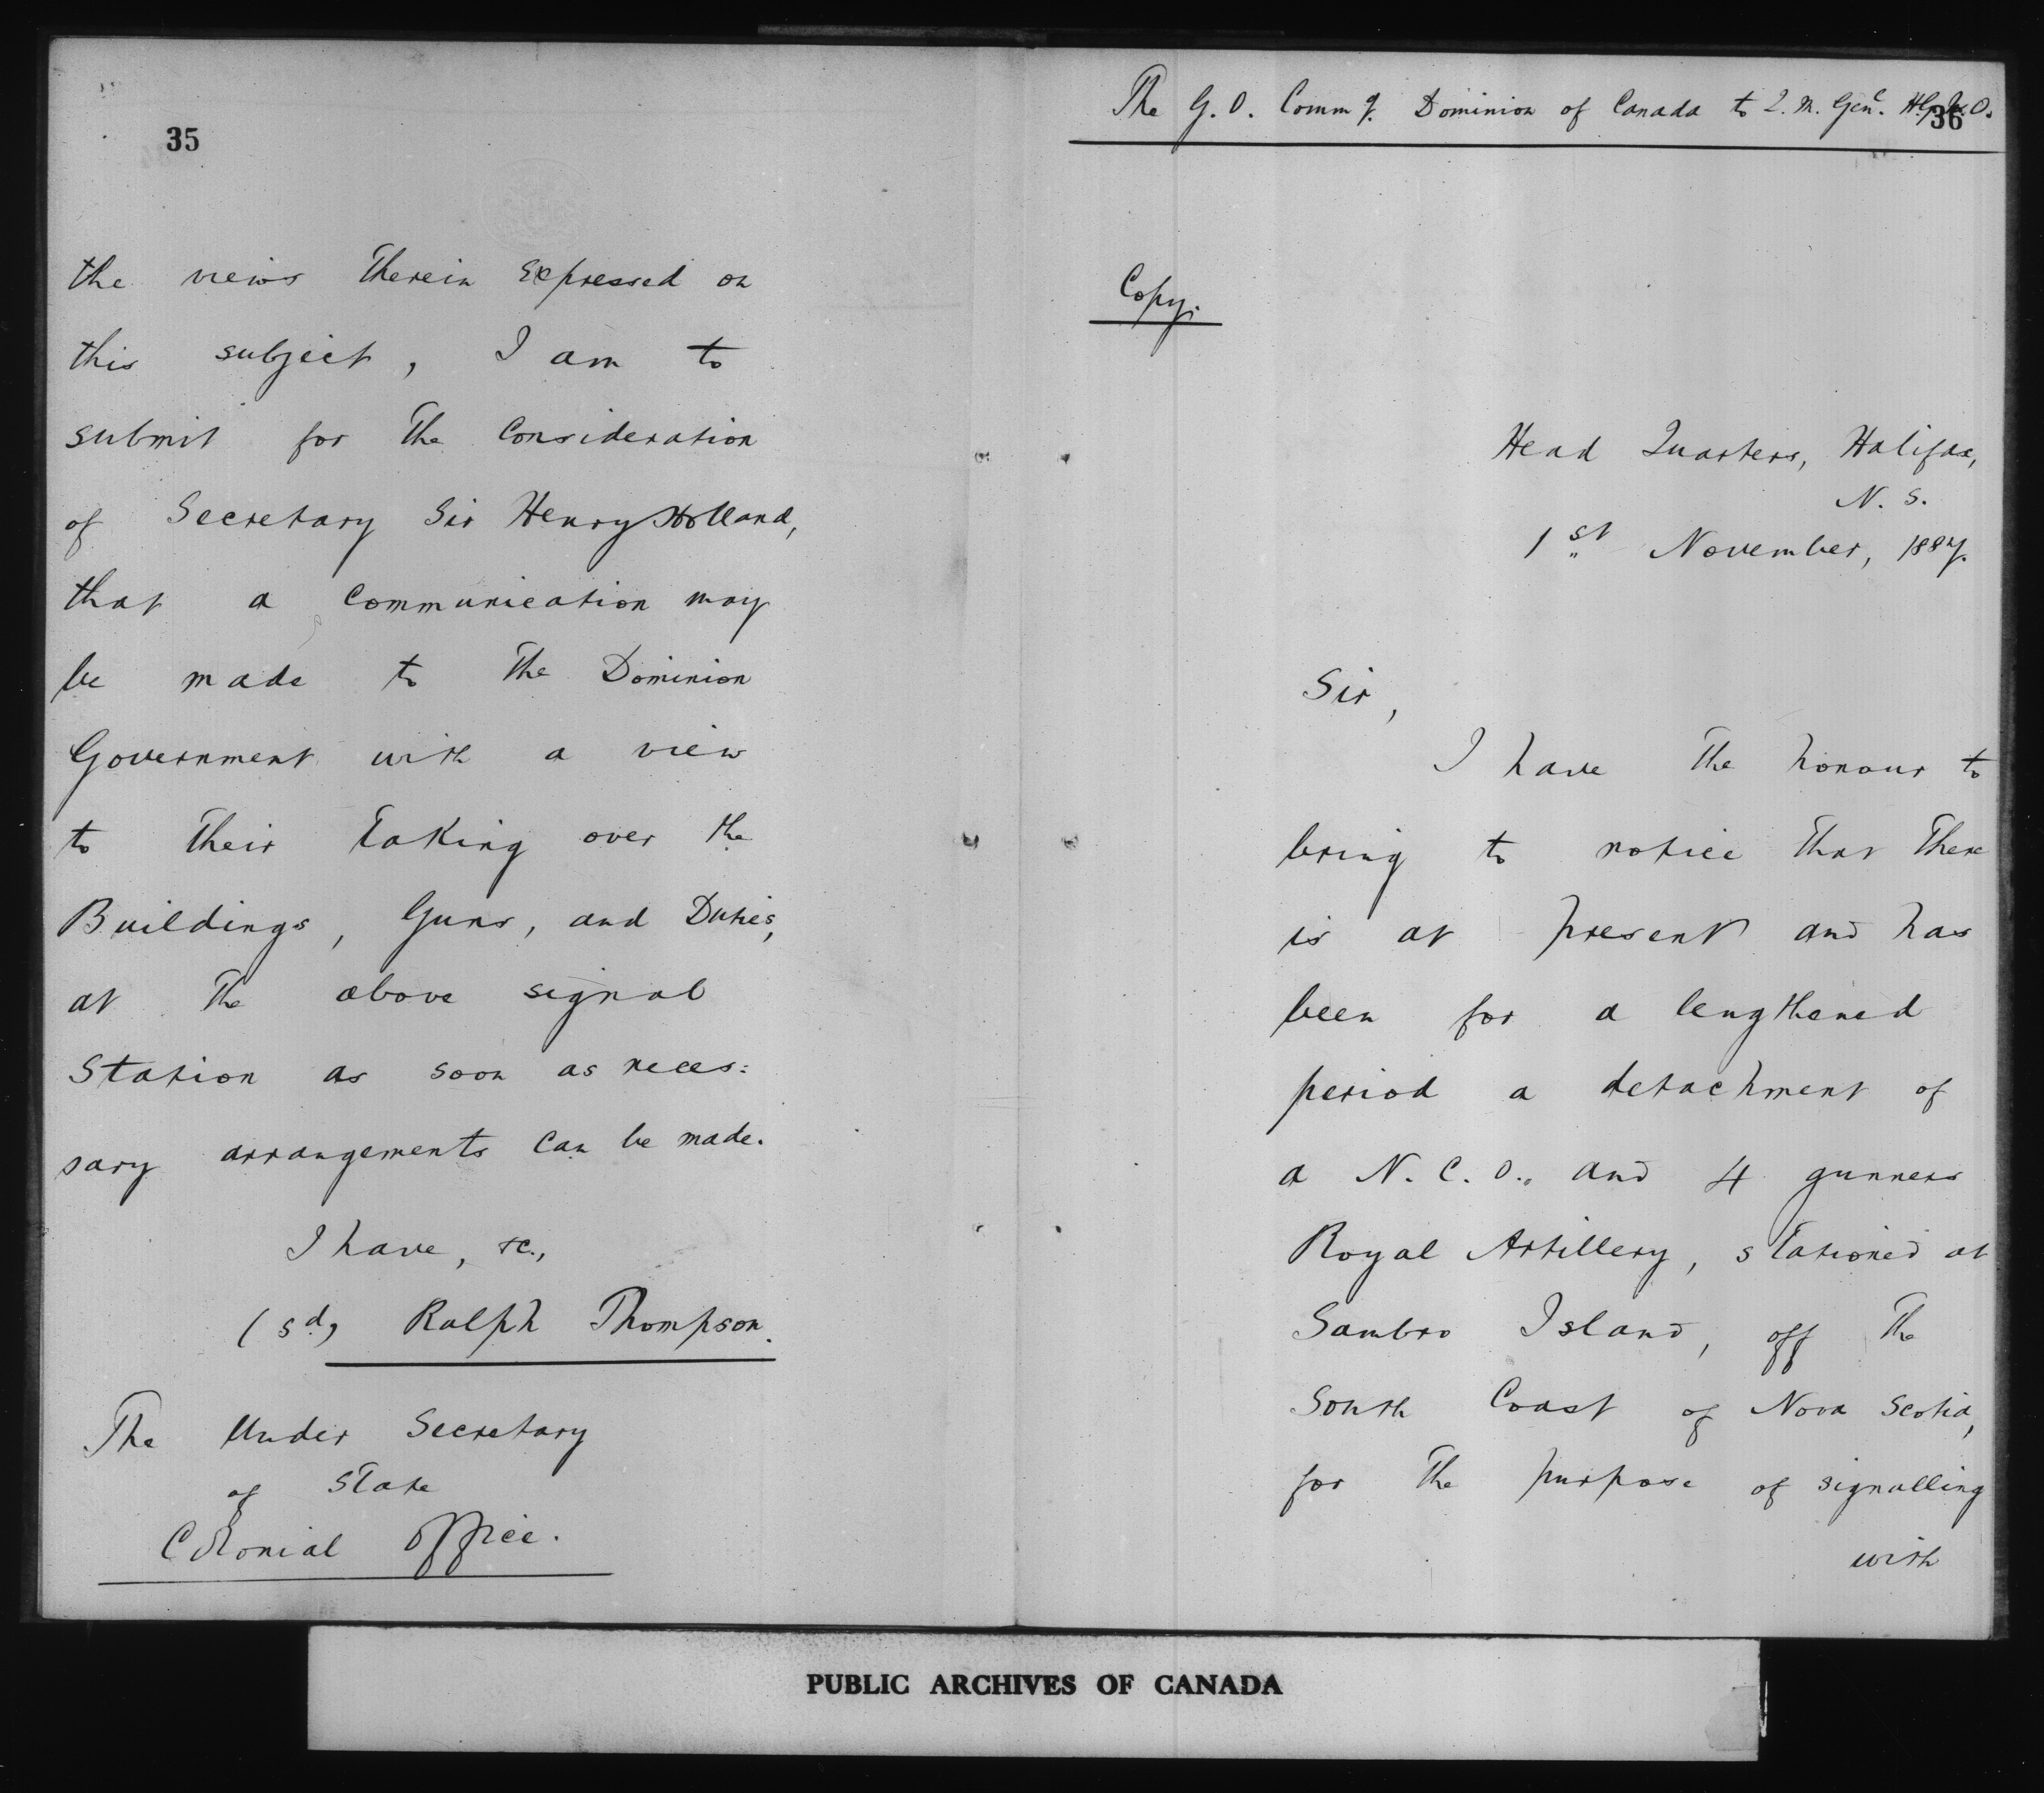 35
the views therein expressed on
this subject, I am to
submit for the Consideration
of Secretary Sir Henry Holland,
that a Communication may
be made to the Dominion
Government with a view
to their taking over the
Buildings, Guns, and Duties,
at the above signal
Station as soon as neces:
sary arrangements can be made.
I have, &c.,
(sd) Ralph Thompson.
The Under Secretary
of State
Colonial Office.
The G. O. Commg. Dominion of Canada to Q. M. Genl.
36
Copy.
Head Quarters, Halifax,
N. S.
1st November, 1887.
Sir,
I have the honour to
bring to notice that there
is at present and has
been for a lengthened
period a detachment of
a N. C. O., and 4 gunners
Royal Artillery, stationed at
Sambro Island, off the
South Coast of Nova Scotia,
for the purpose of signalling
with
PUBLIC ARCHIVES OF CANADA